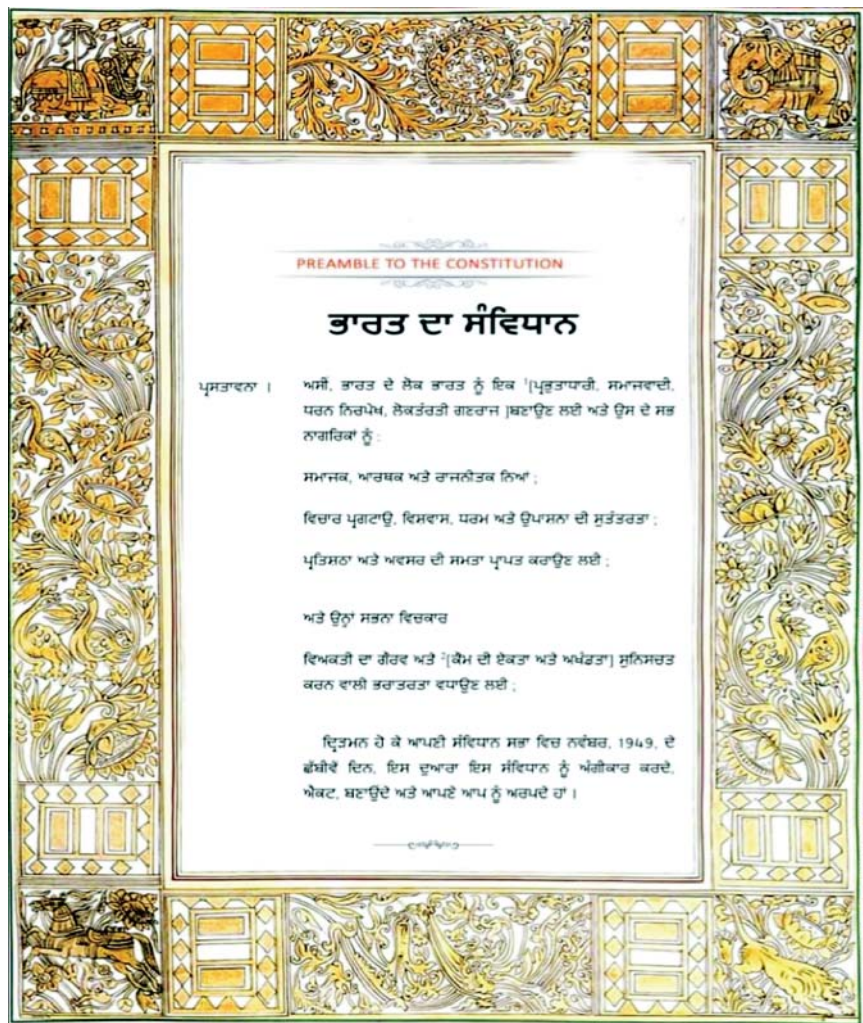 PREAMBLE TO THE CONSTITUTION
ਭਾਰਤ ਦਾ ਸੰਵਿਧਾਨ
ਪ੍ਰਸਤਾਵਨਾ । ਅਸੀਂ, ਭਾਰਤ ਦੇ ਲੋਕ ਭਾਰਤ ਨੂੰ ਇਕ ¹[ਪ੍ਰਭੁਤਾਧਾਰੀ, ਸਮਾਜਵਾਦੀ,
ਧਰਨ ਨਿਰਪੇਖ, ਲੋਕਤੰਰਤੀ ਗਣਰਾਜ ]ਬਣਾਉਣ ਲਈ ਅਤੇ ਉਸ ਦੇ ਸਭ
ਨਾਗਰਿਕਾਂ ਨੂੰ :
ਸਮਾਜਕ, ਆਰਥਕ ਅਤੇ ਰਾਜਨੀਤਕ ਨਿਆਂ ;
ਵਿਚਾਰ ਪ੍ਰਗਟਾਉ, ਵਿਸਵਾਸ, ਧਰਮ ਅਤੇ ਉਪਾਸਨਾ ਦੀ ਸੁਤੰਤਰਤਾ ;
ਪ੍ਰਤਿਸਠਾ ਅਤੇ ਅਵਸਰ ਦੀ ਸਮਤਾ ਪ੍ਰਾਪਤ ਕਰਾਉਣ ਲਈ ;
ਅਤੇ ਉਨ੍ਹਾਂ ਸਭਨਾ ਵਿਚਕਾਰ
ਵਿਅਕਤੀ ਦਾ ਗੌਰਵ ਅਤੇ ²[ਕੌਮ ਦੀ ਏਕਤਾ ਅਤੇ ਅਖੰਡਤਾ] ਸੁਨਿਸਚਤ
ਕਰਨ ਵਾਲੀ ਭਰਾਤਰਤਾ ਵਧਾਉਣ ਲਈ ;
ਦ੍ਰਿੜਮਨ ਹੋ ਕੇ ਆਪਣੀ ਸੰਵਿਧਾਨ ਸਭਾ ਵਿਚ ਨਵੰਬਰ, 1949, ਦੇ
ਛੱਬੀਵੇਂ ਦਿਨ, ਇਸ ਦੁਆਰਾ ਇਸ ਸੰਵਿਧਾਨ ਨੂੰ ਅੰਗੀਕਾਰ ਕਰਦੇ,
ਐਕਟ, ਬਣਾਉਂਦੇ ਅਤੇ ਆਪਣੇ ਆਪ ਨੂੰ ਅਰਪਦੇ ਹਾਂ ।